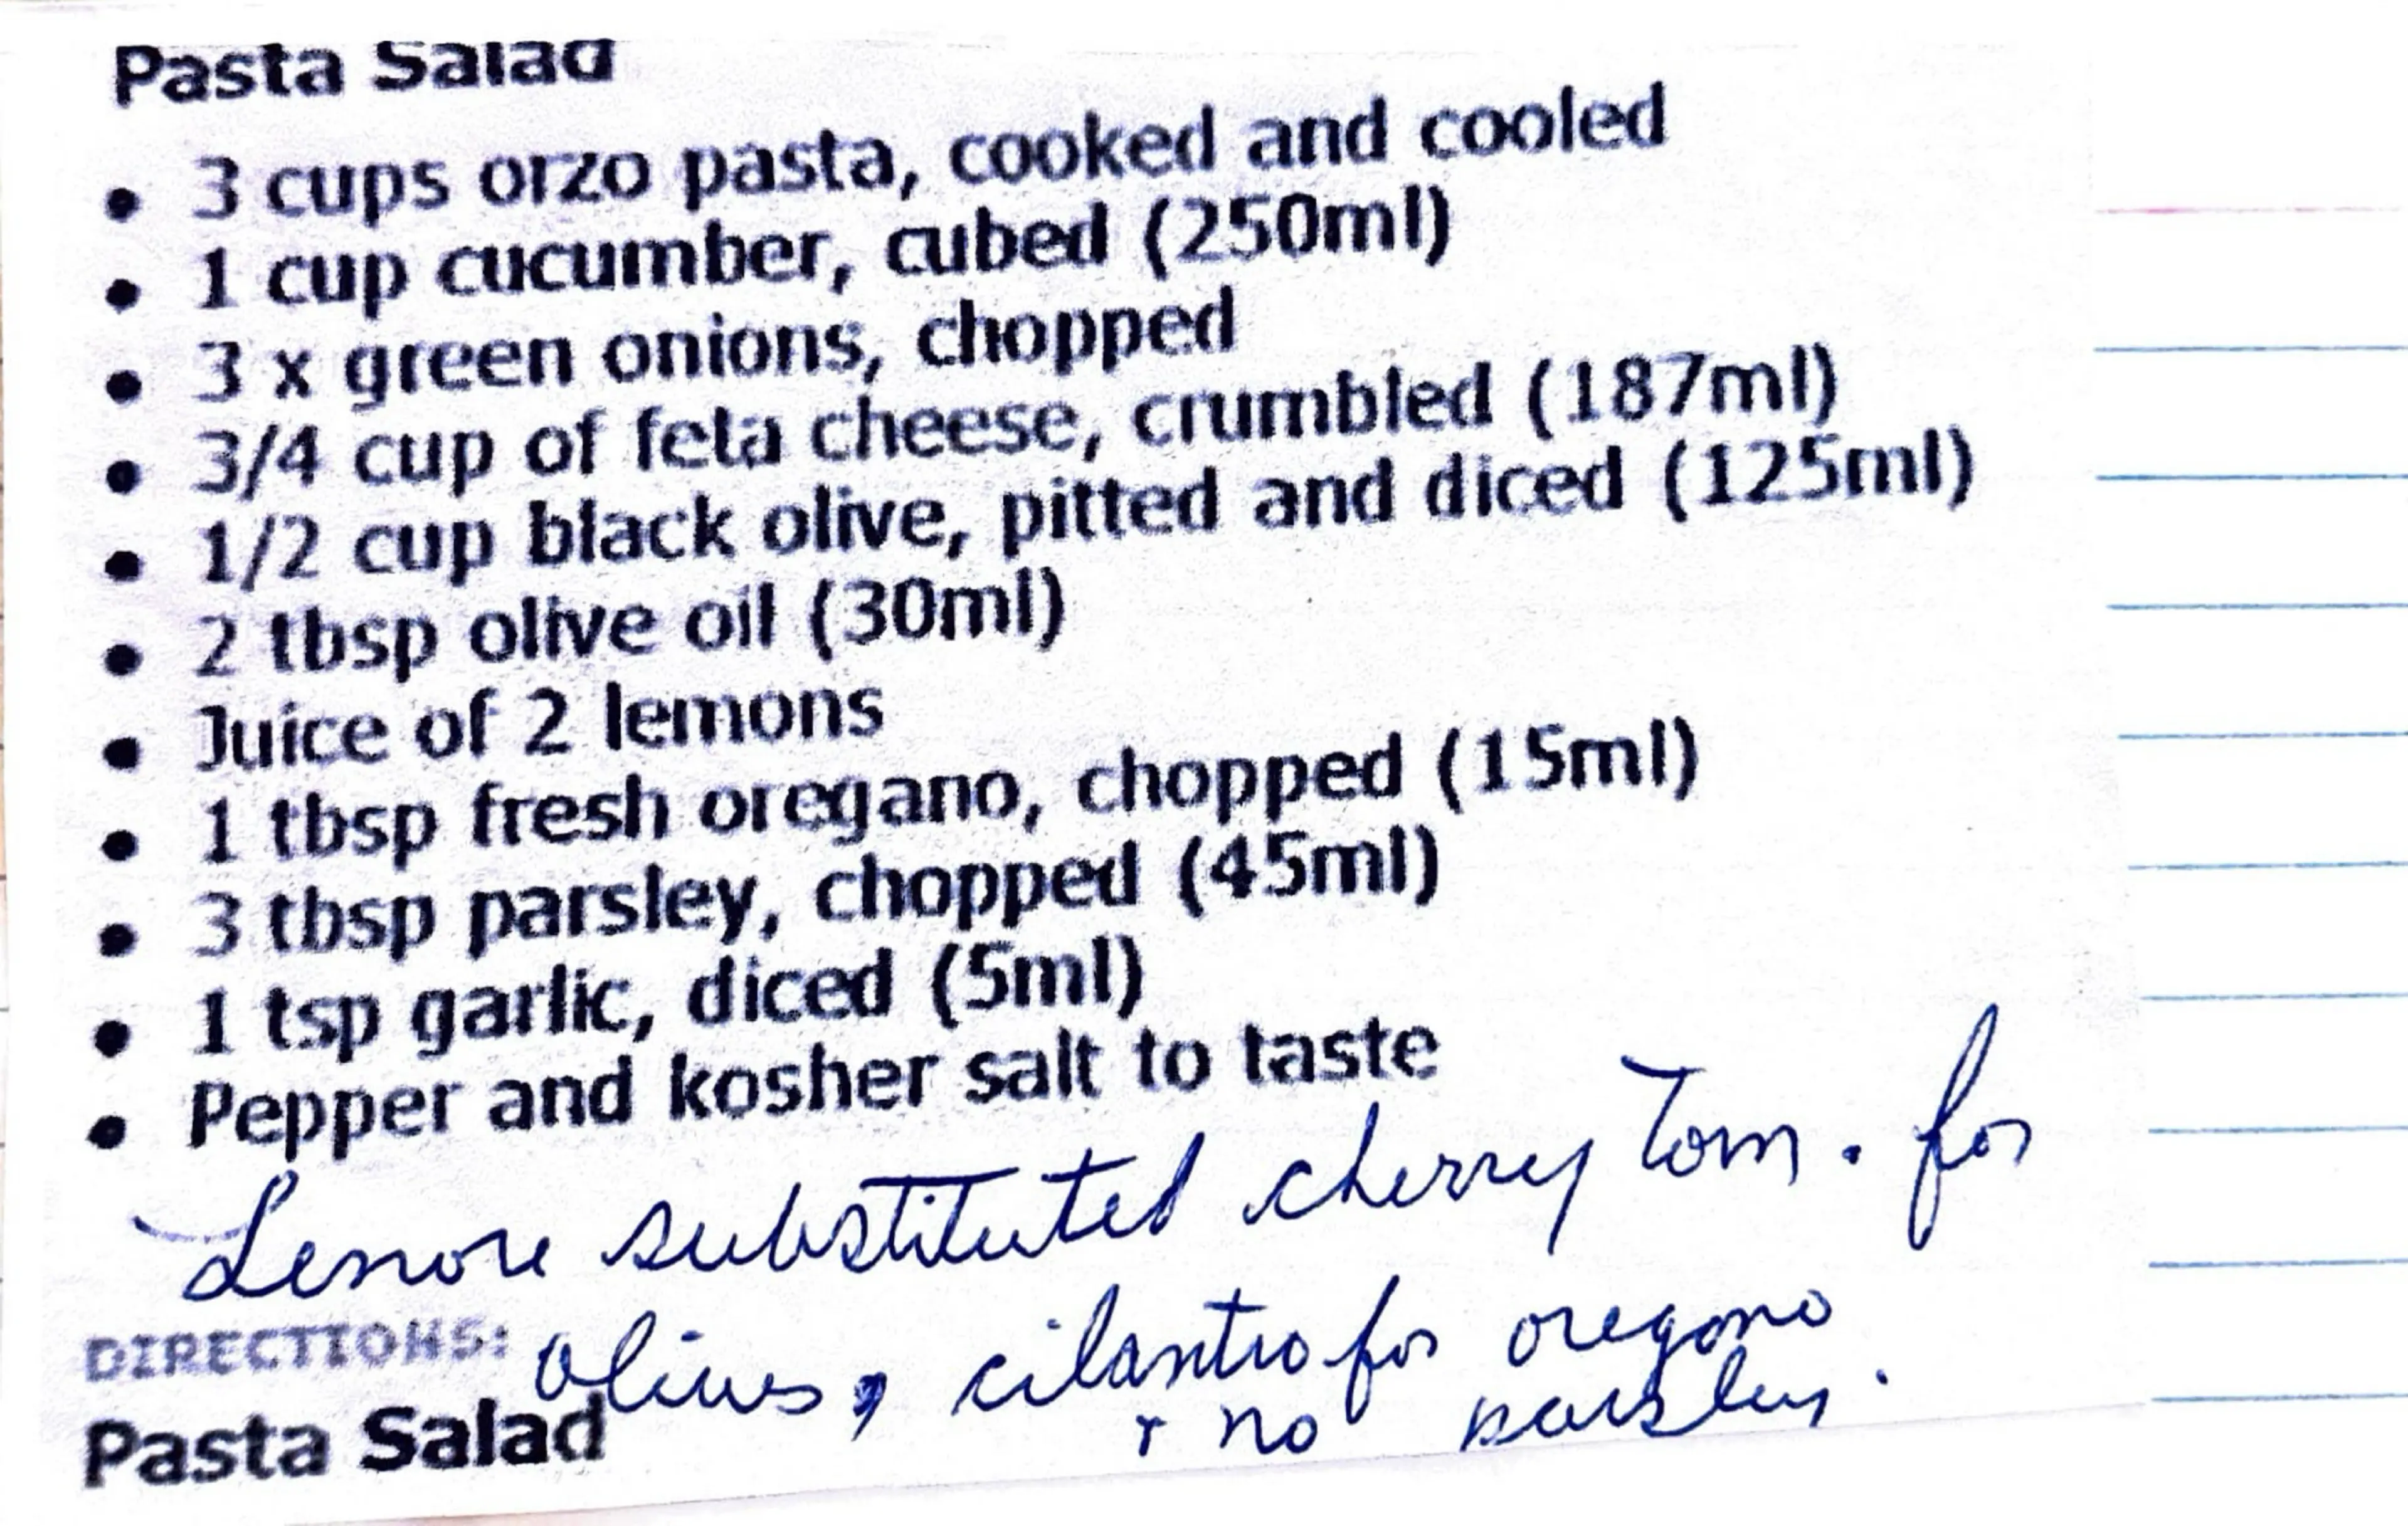 Pasta Salad
• 3 cups orzo pasta, cooked and cooled
• 1 cup cucumber, cubed (250ml)
• 3 x green onions, chopped
• 3/4 cup of feta cheese, crumbled (187ml)
• 1/2 cup black olive, pitted and diced (125ml)
• 2 tbsp olive oil (30ml)
• Juice of 2 lemons
• 1 tbsp fresh oregano, chopped (15ml)
• 3 tbsp parsley, chopped (45ml)
• 1 tsp garlic, diced (5ml)
• Pepper and kosher salt to taste
Lenore substituted cherry tom. for
DIRECTIONS: olives, cilantro for oregano
+ no parsley.
Pasta Salad